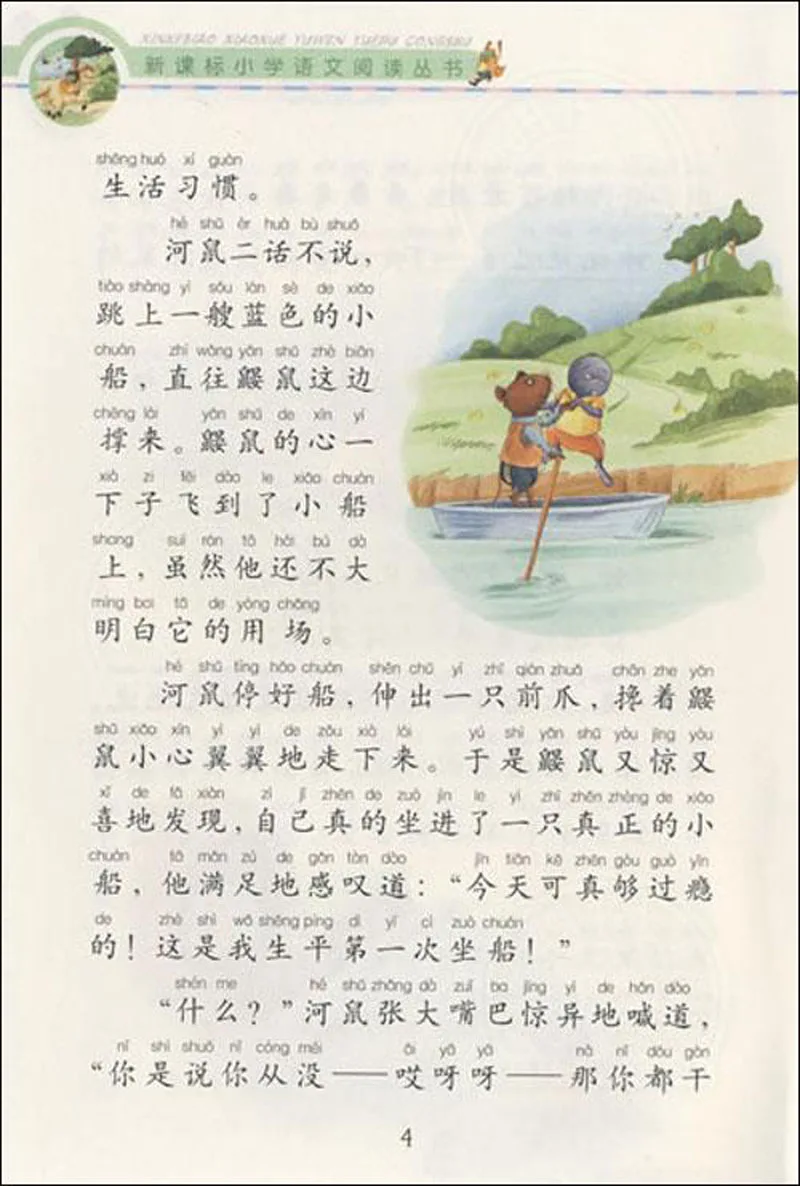 XINKEBIAO XIAOXUE YUWEN YUEDU CONGSHU
新课标小学语文阅读丛书
shēng huó xí guàn
生活习惯。
hé shǔ èr huà bù shuō
河鼠二话不说，
tiào shàng yì sōu lán sè de xiǎo
跳上一艘蓝色的小
chuán zhí wǎng yǎn shǔ zhè biān
船，直往鼹鼠这边
chēng lái yǎn shǔ de xīn yí
撑来。鼹鼠的心一
xià zi fēi dào le xiǎo chuán
下子飞到了小船
shang suī rán tā hái bú dà
上，虽然他还不大
míng bai tā de yòng chǎng
明白它的用场。
hé shǔ tíng hǎo chuán shēn chū yì zhī qián zhuǎ chān zhe yǎn
河鼠停好船，伸出一只前爪，搀着鼹
shǔ xiǎo xīn yì yì de zǒu xià lái yú shì yǎn shǔ yòu jīng yòu
鼠小心翼翼地走下来。于是鼹鼠又惊又
xǐ de fā xiàn zì jǐ zhēn de zuò jìn le yì zhī zhēn zhèng de xiǎo
喜地发现，自己真的坐进了一只真正的小
chuán tā mǎn zú de gǎn tàn dào jīn tiān kě zhēn gòu guò yǐn
船，他满足地感叹道：“今天可真够过瘾
de zhè shì wǒ shēng píng dì yī cì zuò chuán
的！这是我生平第一次坐船！”
shén me hé shǔ zhāng dà zuǐ ba jīng yì de hǎn dào
“什么？”河鼠张大嘴巴惊异地喊道，
nǐ shì shuō nǐ cóng méi āi yā yā nà nǐ dōu gàn
“你是说你从没——哎呀呀——那你都干
4